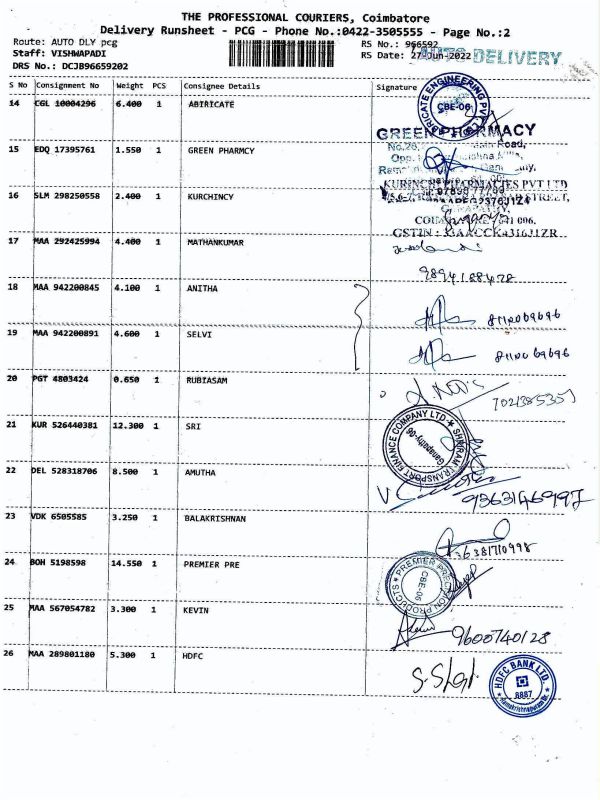 THE PROFESSIONAL COURIERS, Coimbatore
Delivery Runsheet - PCG - Phone No.:0422-3505555 - Page No.:2
Route: AUTO DLY pcg
RS No.: 966592
Staff: VISHWAPADI
RS Date: 27-Jun-2022
AUTO DELIVERY
DRS No.: DCJB96659202
S No Consignment No Weight PCS Consignee Details Signature
14 CGL 10004296 6.400 1 ABIRICATE
CBE-06
15 EDQ 17395761 1.550 1 GREEN PHARMCY
GREEN PHARMACY
16 SLM 298250558 2.400 1 KURCHINCY
PVT LTD
STREET,
641 006.
GSTIN :
17 MAA 292425994 4.400 1 MATHANKUMAR
18 MAA 942200845 4.100 1 ANITHA
19 MAA 942200891 4.600 1 SELVI
20 PGT 4803424 0.650 1 RUBIASAM
21 KUR 526440381 12.300 1 SRI
SHRIRAM TRANSPORT FINANCE COMPANY LTD
Ganapathy-06
22 DEL 528318706 8.500 1 AMUTHA
23 VDK 6505585 3.250 1 BALAKRISHNAN
6381710998
24 BOH 5198598 14.550 1 PREMIER PRE
PREMIER PRECISION PRODUCTS
CBE-06
25 MAA 567054782 3.300 1 KEVIN
9600740128
26 MAA 289801180 5.300 1 HDFC
HDFC BANK LTD.
8887